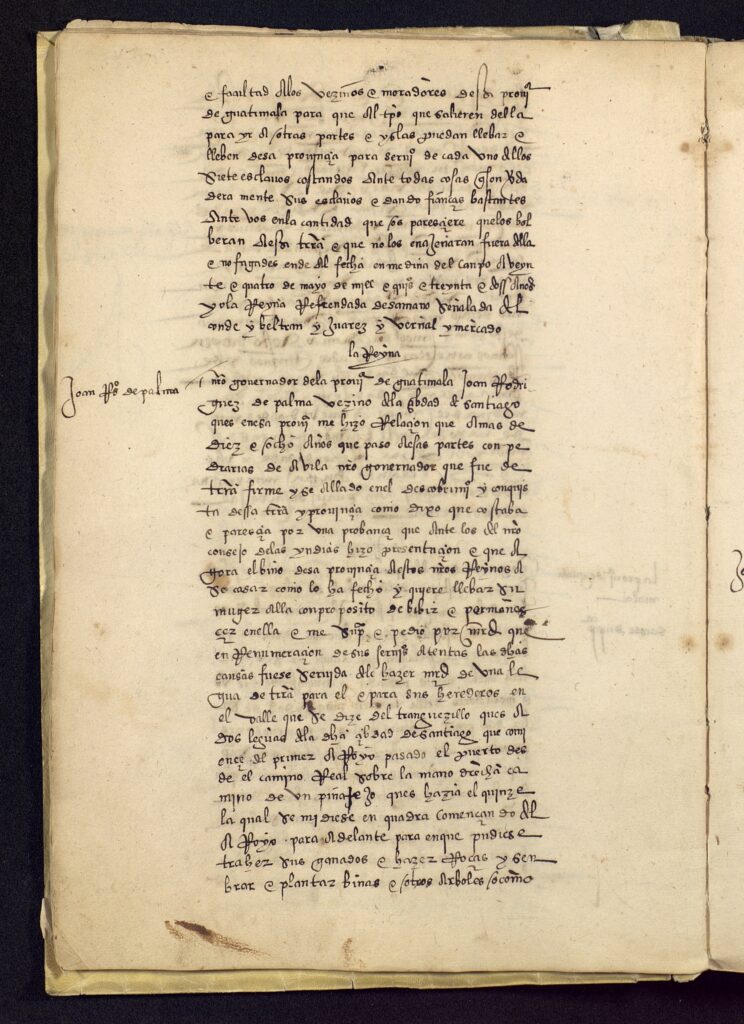 e facultad a los vezinos e moradores desa provi͞a
de guatimala para que al tpo que salieren della
para yr a otras partes e yslas puedan llebar e
lleben desa provinçia para servi͞o de cada uno dellos
siete esclavos costandos ante todas cosas q̃ son v̄da
dera mente sus esclavos e dando fianças bastantes
ante vos en la cantidad que os paresçiere que los bol
beran a esa trr̄a e que no los enajenaran fuera della
e no fagades ende al fecha en medina del canpo a veyn
te e quatro de mayo de mill e quis̄ e treynta e dos años
yo la Reyna Refrendada de samano señalada del
conde y beltran y Juarez y vernal y mercado
la Reyna
Joan Rs̄ de palma
nr̄o governador de la provi͞a de guatimala Joan Rodri
guez de palma vezino de la çibdad de santiago
ques en esa provi͞a me hizo Relaçion que a mas de
diez e ocho años que paso a esas partes con pe
drarias de avila nr̄o governador que fue de
trr̄a firme y se allado en el descobrimi͞o y conquis
ta dessa trr̄a y provinçia como dixo que costaba
e paresçia por una probança que ante los del nr̄o
consejo de las yndias hizo presentaçion e que a
gora el bino desa provinçia a estos nr̄os Reynos a
se casar como lo ha fecho y quiere llebar su
muger alla con proposito de bibir e permane
çer en ella e me sup̄ e pedio por mrd̄ que
en Renumeraçion de sus servi͞os atentas las dhas
causas fuese servida de le hazer mrd̄ de una le
gua de trr̄a para el e para sus herederos en
el valle que se dize del tianguezillo ques a
dos leguas de la dha çibdad de santiago que comi
ença del primer aRoyo pasado el puerto des
de el camino Real sobre la mano derecha ca
mino de un pinalejo ques hazia el quinze
la qual se midiese en quadra començando del
aRoyo para adelante para en que pudiese
traher sus ganados e hazer Roças y sen
brar e plantar binas e otros arboles o como